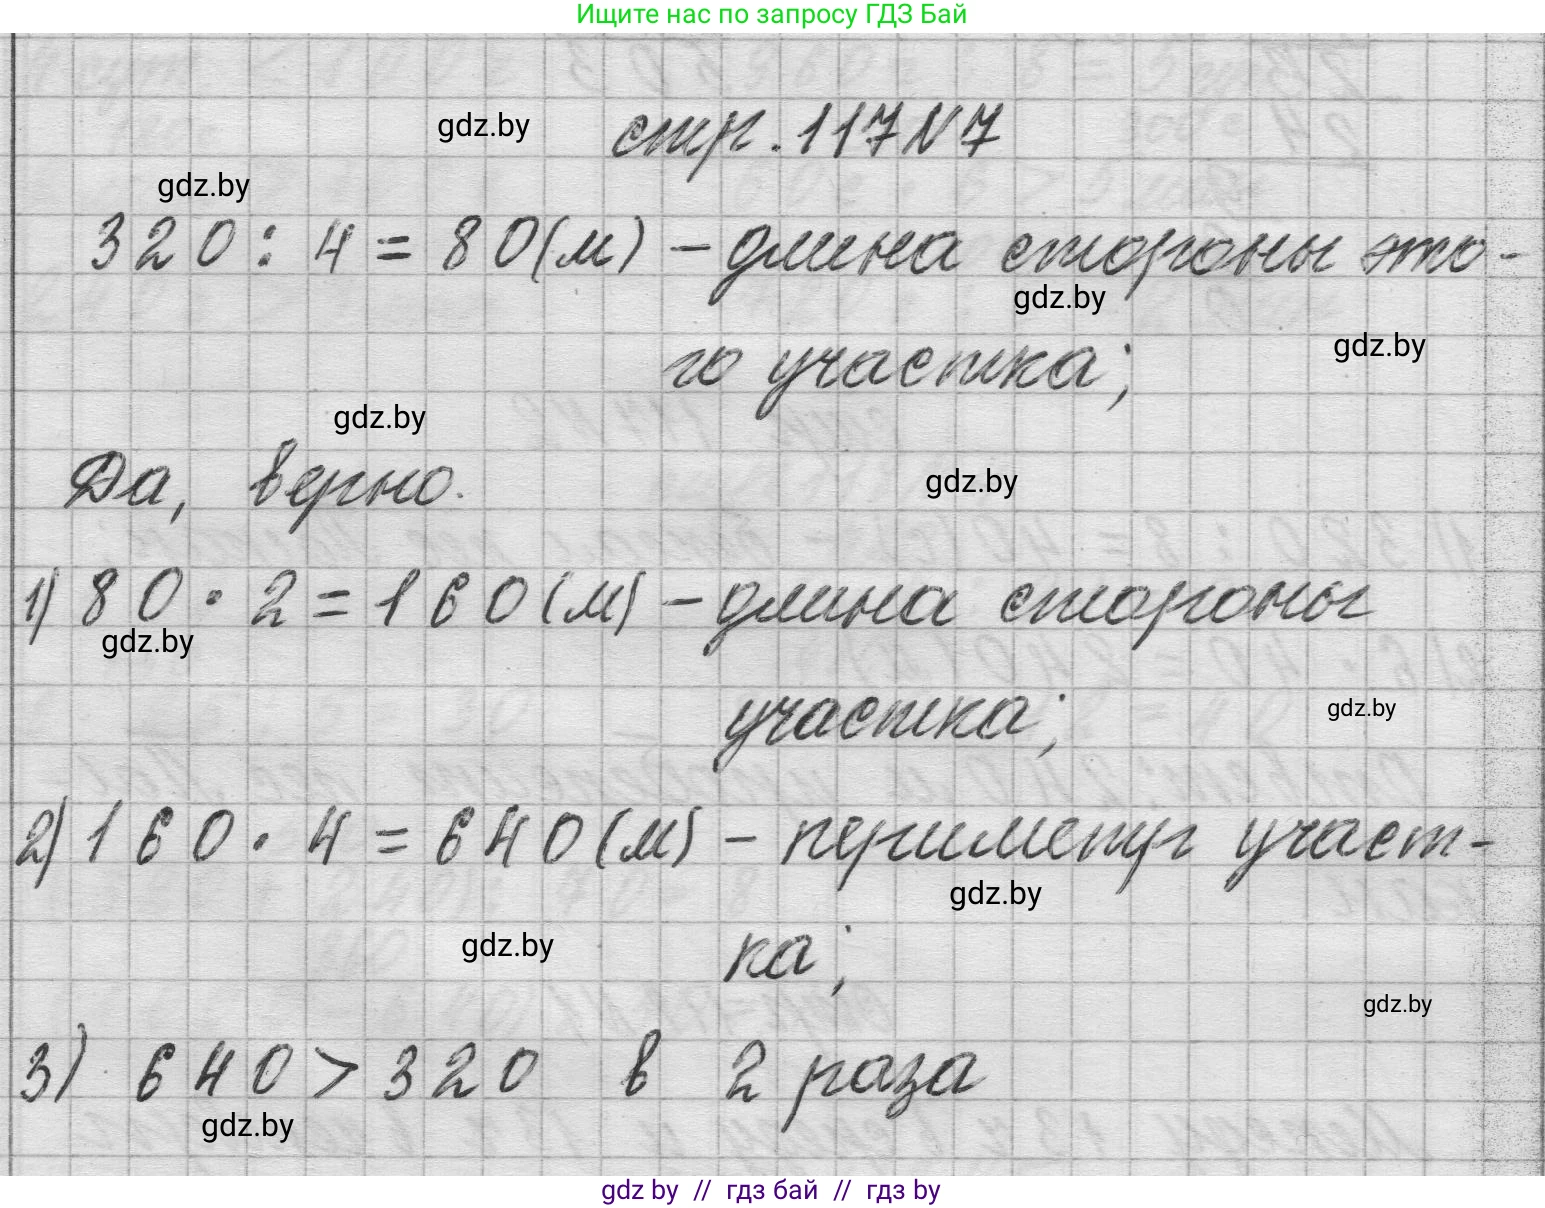 Ищите нас по запросу ГДЗ Бай
gdz.by стр. 117 N 7
gdz.by
320 : 4 = 80 (м) – длина стороны это-
gdz.by
го участка;
gdz.by
gdz.by
Да, верно.
gdz.by
1) 80 · 2 = 160 (м) – длина стороны
gdz.by
участка;
gdz.by
2) 160 · 4 = 640 (м) – периметр участ-
gdz.by
ка;
gdz.by
gdz.by
3) 640 > 320 в 2 раза
gdz.by
gdz by // гдз бай // гдз by